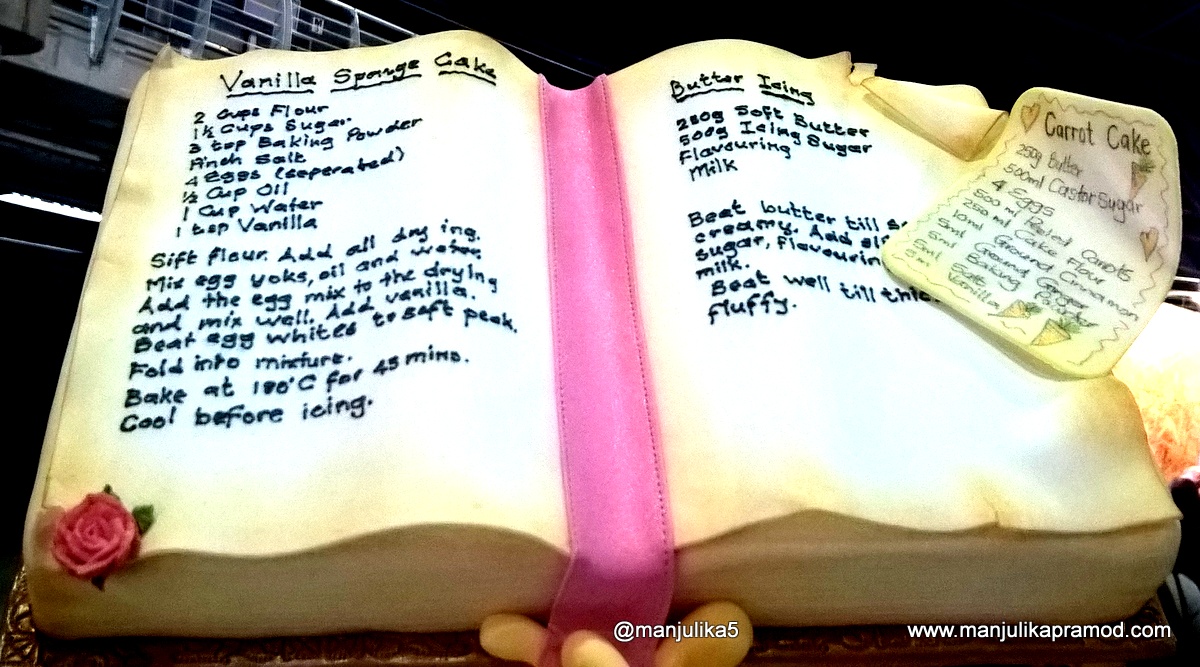 Vanilla Sponge Cake
2 Cups Flour
1½ Cups Sugar.
3 tsp Baking Powder
Pinch Salt
4 Eggs (seperated)
½ Cup Oil
1 Cup Water
1 tsp Vanilla
Sift flour. Add all dry ing.
Mix egg yoks, oil and water.
Add the egg mix to the drying
and mix well. Add vanilla.
Beat egg whites to soft peak.
Fold into mixture.
Bake at 180°C for 45 mins.
Cool before icing.
Butter Icing
250g Soft Butter
500g Icing Sugar
Flavouring
Milk
Beat butter till
creamy. Add
sugar, flavourin
milk.
Beat well till thic
fluffy.
Carrot Cake
250g Butter
500ml Castor Sugar
4 Eggs
500 ml Peeled Carrots
250 ml Cake Flour
10ml Ground Cinnamon
5ml Ground Ginger
5ml Baking Powder
5ml Salt
5ml Vanilla
@manjulika5
www.manjulikapramod.com